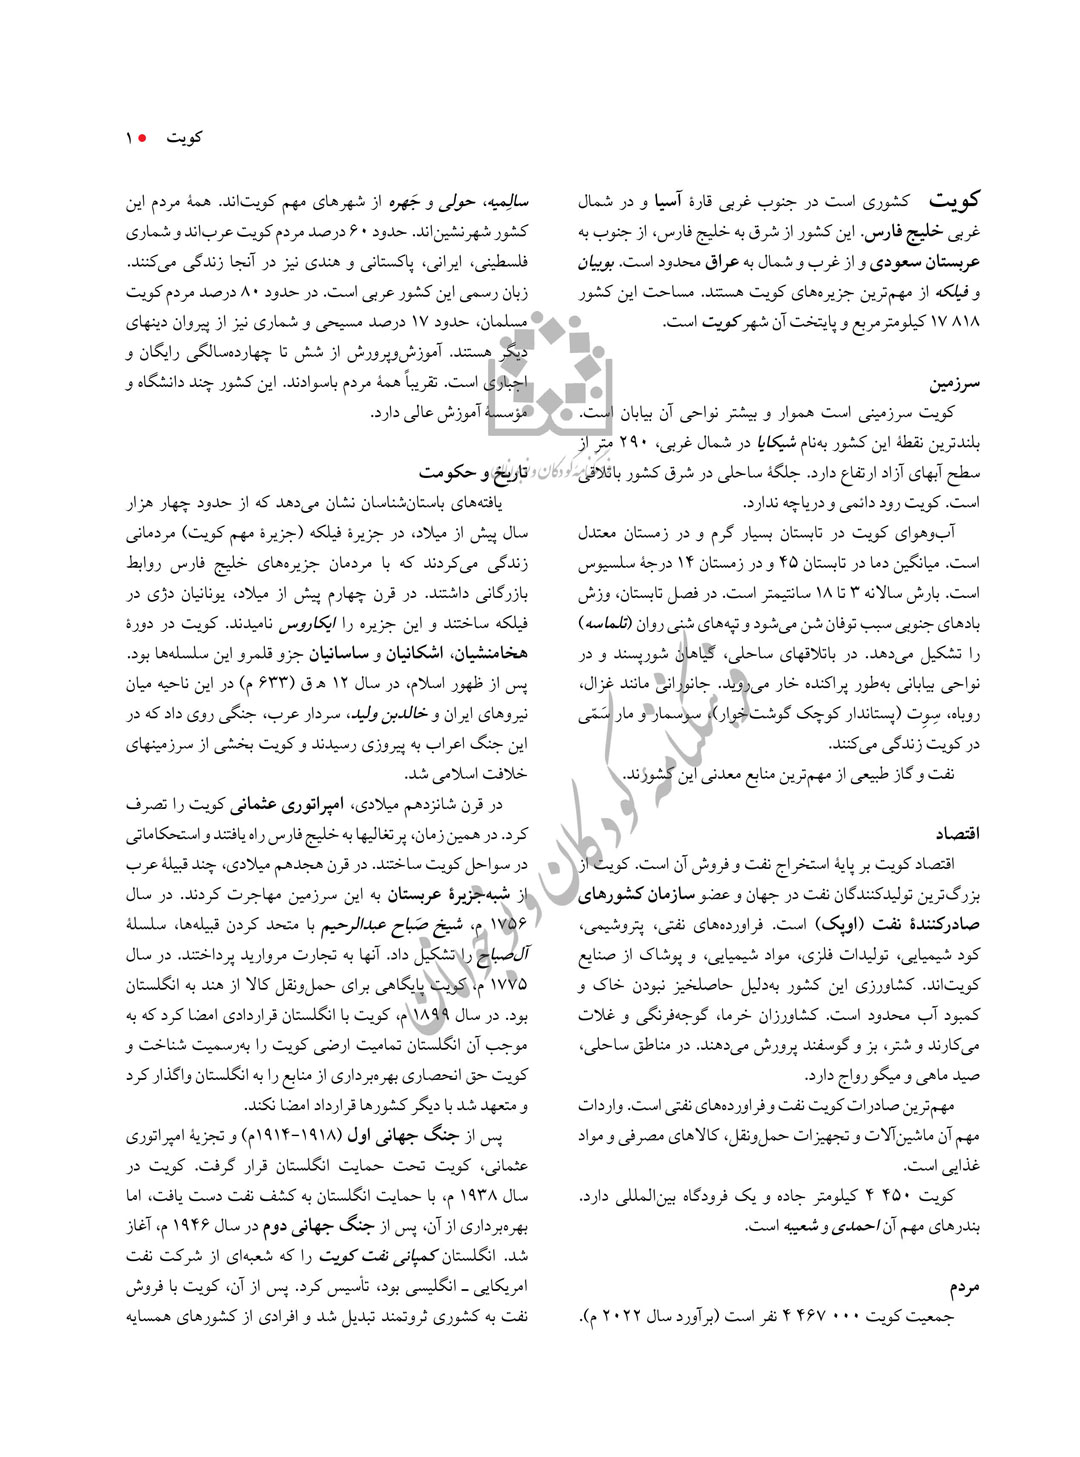 کویت ● ۱
کویت کشوری است در جنوب غربی قارهٔ آسیا و در شمال
غربی خلیج فارس. این کشور از شرق به خلیج فارس، از جنوب به
عربستان سعودی و از غرب و شمال به عراق محدود است. بوبیان
و فیلکه از مهم‌ترین جزیره‌های کویت هستند. مساحت این کشور
۱۷ ۸۱۸ کیلومترمربع و پایتخت آن شهر کویت است.
سرزمین
کویت سرزمینی است هموار و بیشتر نواحی آن بیابان است.
بلندترین نقطهٔ این کشور به‌نام شیکایا در شمال غربی، ۲۹۰ متر از
سطح آبهای آزاد ارتفاع دارد. جلگهٔ ساحلی در شرق کشور باتلاقی
است. کویت رود دائمی و دریاچه ندارد.
آب‌وهوای کویت در تابستان بسیار گرم و در زمستان معتدل
است. میانگین دما در تابستان ۴۵ و در زمستان ۱۴ درجهٔ سلسیوس
است. بارش سالانه ۳ تا ۱۸ سانتیمتر است. در فصل تابستان، وزش
بادهای جنوبی سبب توفان شن می‌شود و تپه‌های شنی روان (تلماسه)
را تشکیل می‌دهد. در باتلاقهای ساحلی، گیاهان شورپسند و در
نواحی بیابانی به‌طور پراکنده خار می‌روید. جانورانی مانند غزال،
روباه، سِوِت (پستاندار کوچک گوشت‌خوار)، سوسمار و مار سَمّی
در کویت زندگی می‌کنند.
نفت و گاز طبیعی از مهم‌ترین منابع معدنی این کشورند.
اقتصاد
اقتصاد کویت بر پایهٔ استخراج نفت و فروش آن است. کویت از
بزرگ‌ترین تولیدکنندگان نفت در جهان و عضو سازمان کشورهای
صادرکنندهٔ نفت (اوپک) است. فراورده‌های نفتی، پتروشیمی،
کود شیمیایی، تولیدات فلزی، مواد شیمیایی، و پوشاک از صنایع
کویت‌اند. کشاورزی این کشور به‌دلیل حاصلخیز نبودن خاک و
کمبود آب محدود است. کشاورزان خرما، گوجه‌فرنگی و غلات
می‌کارند و شتر، بز و گوسفند پرورش می‌دهند. در مناطق ساحلی،
صید ماهی و میگو رواج دارد.
مهم‌ترین صادرات کویت نفت و فراورده‌های نفتی است. واردات
مهم آن ماشین‌آلات و تجهیزات حمل‌ونقل، کالاهای مصرفی و مواد
غذایی است.
کویت ۴۵۰ ۴ کیلومتر جاده و یک فرودگاه بین‌المللی دارد.
بندرهای مهم آن احمدی و شعیبه است.
مردم
جمعیت کویت ۰۰۰ ۴۶۷ ۴ نفر است (برآورد سال ۲۰۲۲ م).
سالِمیه، حولی و جَهره از شهرهای مهم کویت‌اند. همهٔ مردم این
کشور شهرنشین‌اند. حدود ۶۰ درصد مردم کویت عرب‌اند و شماری
فلسطینی، ایرانی، پاکستانی و هندی نیز در آنجا زندگی می‌کنند.
زبان رسمی این کشور عربی است. در حدود ۸۰ درصد مردم کویت
مسلمان، حدود ۱۷ درصد مسیحی و شماری نیز از پیروان دینهای
دیگر هستند. آموزش‌وپرورش از شش تا چهارده‌سالگی رایگان و
اجباری است. تقریباً همهٔ مردم باسوادند. این کشور چند دانشگاه و
مؤسسهٔ آموزش عالی دارد.
تاریخ و حکومت
یافته‌های باستان‌شناسان نشان می‌دهد که از حدود چهار هزار
سال پیش از میلاد، در جزیرهٔ فیلکه (جزیرهٔ مهم کویت) مردمانی
زندگی می‌کردند که با مردمان جزیره‌های خلیج فارس روابط
بازرگانی داشتند. در قرن چهارم پیش از میلاد، یونانیان دژی در
فیلکه ساختند و این جزیره را ایکاروس نامیدند. کویت در دورهٔ
هخامنشیان، اشکانیان و ساسانیان جزو قلمرو این سلسله‌ها بود.
پس از ظهور اسلام، در سال ۱۲ ه‍ ق (۶۳۳ م) در این ناحیه میان
نیروهای ایران و خالدبن ولید، سردار عرب، جنگی روی داد که در
این جنگ اعراب به پیروزی رسیدند و کویت بخشی از سرزمینهای
خلافت اسلامی شد.
در قرن شانزدهم میلادی، امپراتوری عثمانی کویت را تصرف
کرد. در همین زمان، پرتغالیها به خلیج فارس راه یافتند و استحکاماتی
در سواحل کویت ساختند. در قرن هجدهم میلادی، چند قبیلهٔ عرب
از شبه‌جزیرهٔ عربستان به این سرزمین مهاجرت کردند. در سال
۱۷۵۶ م، شیخ صَباح عبدالرحیم با متحد کردن قبیله‌ها، سلسلهٔ
آل‌صباح را تشکیل داد. آنها به تجارت مروارید پرداختند. در سال
۱۷۷۵ م، کویت پایگاهی برای حمل‌ونقل کالا از هند به انگلستان
بود. در سال ۱۸۹۹ م، کویت با انگلستان قراردادی امضا کرد که به
موجب آن انگلستان تمامیت ارضی کویت را به‌رسمیت شناخت و
کویت حق انحصاری بهره‌برداری از منابع را به انگلستان واگذار کرد
و متعهد شد با دیگر کشورها قرارداد امضا نکند.
پس از جنگ جهانی اول (۱۹۱۸-۱۹۱۴م) و تجزیهٔ امپراتوری
عثمانی، کویت تحت حمایت انگلستان قرار گرفت. کویت در
سال ۱۹۳۸ م، با حمایت انگلستان به کشف نفت دست یافت، اما
بهره‌برداری از آن، پس از جنگ جهانی دوم در سال ۱۹۴۶ م، آغاز
شد. انگلستان کمپانی نفت کویت را که شعبه‌ای از شرکت نفت
امریکایی ـ انگلیسی بود، تأسیس کرد. پس از آن، کویت با فروش
نفت به کشوری ثروتمند تبدیل شد و افرادی از کشورهای همسایه
فرهنگنامه کودکان و نوجوانان
فرهنگنامه کودکان و نوجوانان